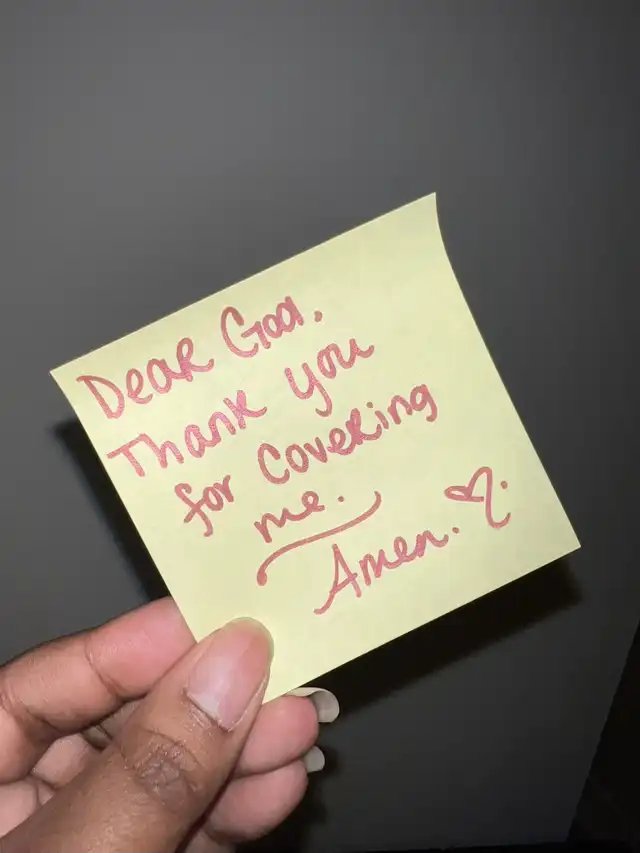 Dear God,
Thank you
for Covering
me.
Amen.